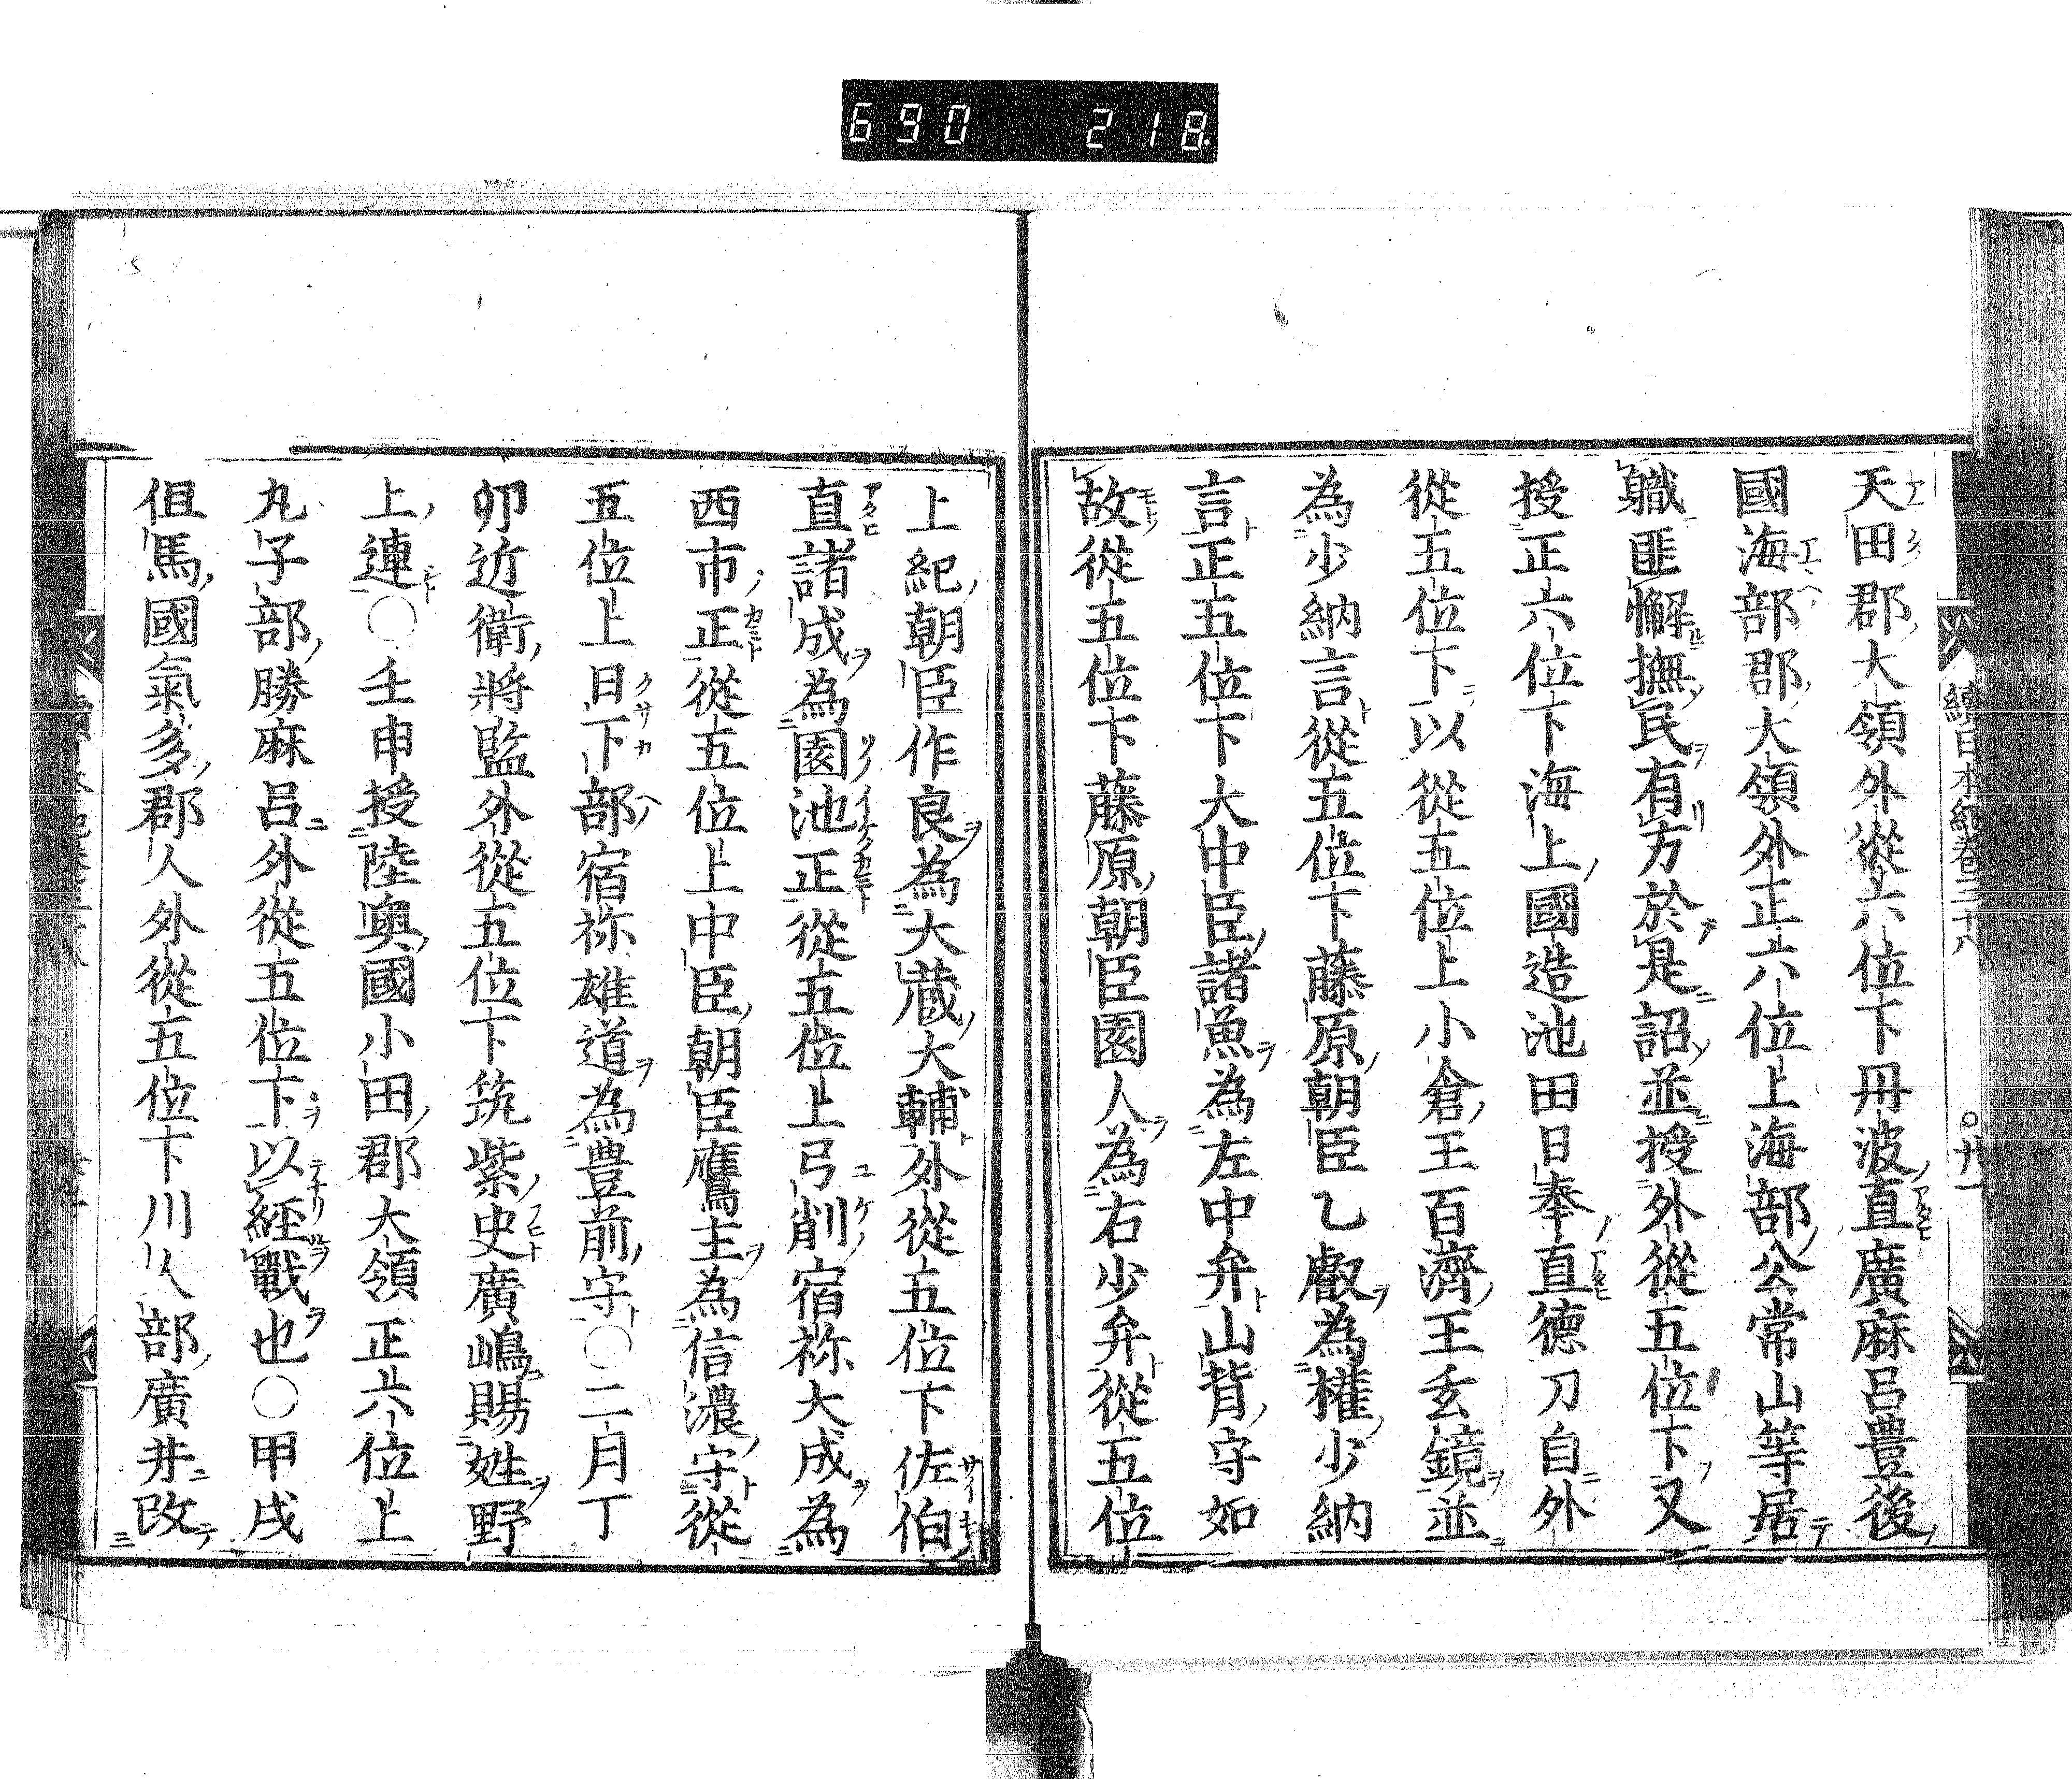 690 218
續日本紀卷三十八
廿一
天田郡大領外從六位下丹波直廣麻呂豊後
國海部郡大領外正六位上海部公常山等居
職匪懈撫民有方於是詔並授外從五位下又
授正六位下海上國造池田日奉直德刀自外
從五位下以從五位上小倉王百濟王玄鏡並
為少納言從五位下藤原朝臣乙叡為權少納
言正五位下大中臣諸魚為左中弁山背守如
故從五位下藤原朝臣園人為右少弁從五位
上紀朝臣作良為大蔵大輔外從五位下佐伯
直諸成為園池正從五位上弓削宿祢大成為
西市正從五位上中臣朝臣鷹主為信濃守從
五位上日下部宿祢雄道為豊前守○二月丁
卯近衛將監外從五位下筑紫史廣嶋賜姓野
上連○壬申授陸奥國小田郡大領正六位上
丸子部勝麻呂外從五位下以經戰也○甲戌
但馬國氣多郡人外從五位下川人部廣井改